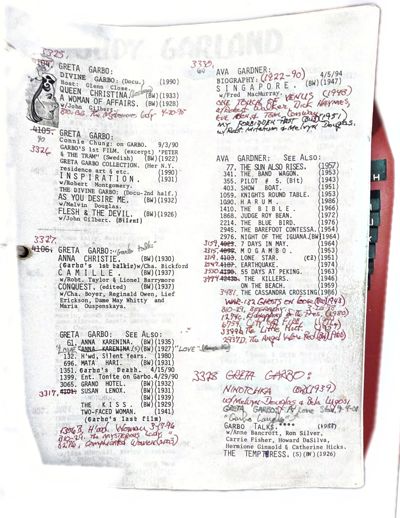 3325.
GRETA GARBO:
DIVINE GARBO: (Docu.) (1990)
Host: Glenn Close.
QUEEN CHRISTINA (BW)(1933)
A WOMAN OF AFFAIRS. (BW)(1928)
w/John Gilbert.
810-B2. The Mysterious Lady. 4-20-98
4105.
3326
GRETA GARBO:
Connie Chung: on GARBO. 9/3/90
GARBO'S 1st FILM. (excerpt) "PETER
& THE TRAM" (Swedish) (BW)(1922)
GRETA GARBO COLLECTION. (Her N.Y.
residence art & etc. (1990)
INSPIRATION. (BW)(1931)
w/Robert Montgomery.
THE DIVINE GARBO: (Docu-2nd half.)
AS YOU DESIRE ME. (BW)(1932)
w/Melvin Douglas.
FLESH & THE DEVIL. (BW)(1926)
w/John Gilbert.
3327.
4106.
GRETA GARBO: "Garbo talks"
ANNA CHRISTIE. (BW)(1930)
(Garbo's 1st talkie)w/Cha. Bickford
CAMILLE. (BW)(1937)
w/Robt. Taylor & Lionel Barrymore
CONQUEST. (edited) (BW)(1937)
w/Cha. Boyer, Reginald Owen, Leif
Erickson, Dame May Whitty and
Maria Ouspenskaya.
GRETA GARBO: See Also:
61. ANNA KARENINA. (BW)(1935)
"LOVE" ANNA KARENINA (BW)(1927) "LOVE"
132. H'wd, Silent Years. (1980)
696. MATA' HARI. (BW)(1931)
1351. Garbo's Death. 4/15/90
1399. Ent. Tonite on Garbo. 4/29/90
3065. GRAND HOTEL. (BW)(1932)
3317. SUSAN LENOX. (BW)(1931)
(BW)(1939)
THE KISS. (BW)(1929)
TWO-FACED WOMAN. (1941)
(Garbo's last film)
810-24. The Mysterious Lady.
3330.
AVA GARDNER: 4/5/94
BIOGRAPHY. (1922-90)
SINGAPORE. (BW)(1947)
w/Fred MacMurray.
ONE TOUCH OF VENUS (1948)
w/Robert Walker, Dick Haymes,
Eve Arden & Tom Conway
MY FORBIDDEN PAST (BW)(1951)
w/Robt. Mitchum & Melvyn Douglas.
AVA GARDNER: See Also:
77. THE SUN ALSO RISES. (1957)
341. THE BAND WAGON. (1953)
355. PILOT # 5. (Bit) (1943)
403. SHOW BOAT. (1951)
1059. KNIGHTS ROUND TABLE. (1953)
1090. HARUM. (1986)
1410. THE BIBLE. (1966)
1868. JUDGE ROY BEAN. (1972)
2214. THE BLUE BIRD. (1976)
2945. THE BAREFOOT CONTESSA. (1954)
2976. NIGHT OF THE IGUANA. (BW)(1964)
7 DAYS IN MAY. (1964)
MOGAMBO. (1953)
LONE STAR. (CZ) (1951)
EARTHQUAKE. (1974)
55 DAYS AT PEKING. (1963)
THE KILLERS. (BW)(1946)
ON THE BEACH. (1959)
3481. THE CASSANDRA CROSSING (1986)
WWII-132 GHOSTS ON LOOSE (BW)(1943)
1296. Kidnapping of the Pres. (1980)
2937D. The Angel Wore Red (BW)(1960)
3328 GRETA GARBO:
NINOTCHKA (BW)(1939)
w/Melvyn Douglas & Bela Lugosi
GRETA GARBO: A Love Story 9-4-02
"Garbo Laughs"
GARBO TALKS.**** (1985)
w/Anne Bancroft, Ron Silver,
Carrie Fisher, Howard DaSilva,
Hermione Gingold & Catherine Hicks.
THE TEMPTRESS. (S)(BW)(1926)